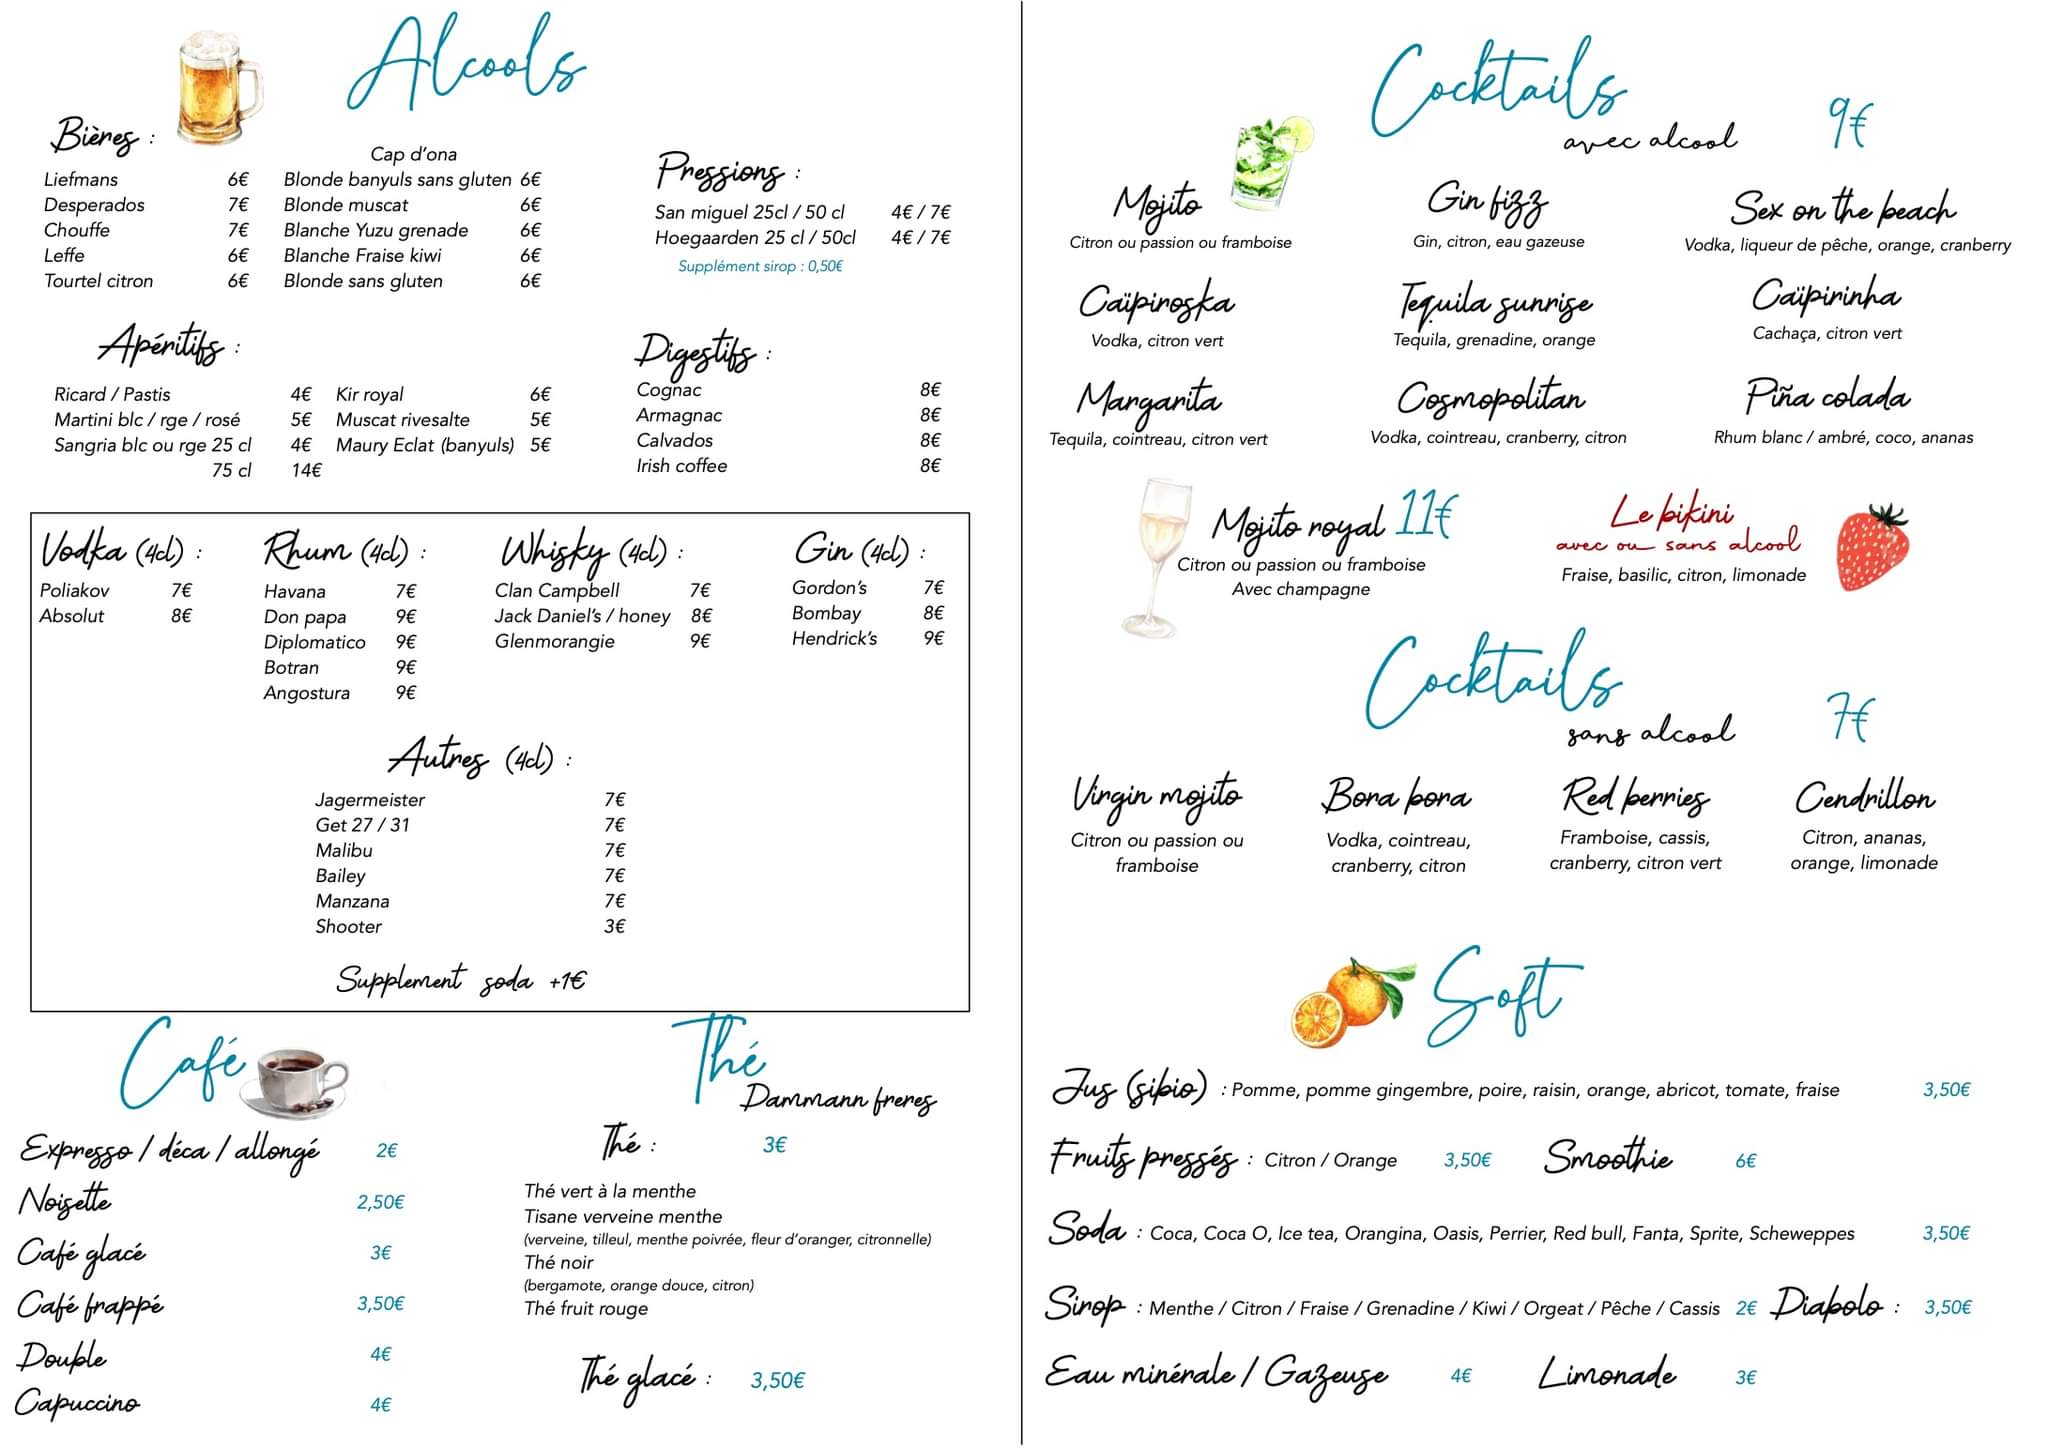 Alcools
Bières :
Liefmans 6€
Desperados 7€
Chouffe 7€
Leffe 6€
Tourtel citron 6€
Cap d'ona
Blonde banyuls sans gluten 6€
Blonde muscat 6€
Blanche Yuzu grenade 6€
Blanche Fraise kiwi 6€
Blonde sans gluten 6€
Pressions :
San miguel 25cl / 50 cl 4€ / 7€
Hoegaarden 25 cl / 50cl 4€ / 7€
Supplément sirop : 0,50€
Apéritifs :
Ricard / Pastis 4€
Martini blc / rge / rosé 5€
Sangria blc ou rge 25 cl 4€
75 cl 14€
Kir royal 6€
Muscat rivesalte 5€
Maury Eclat (banyuls) 5€
Digestifs :
Cognac 8€
Armagnac 8€
Calvados 8€
Irish coffee 8€
Vodka (4cl) :
Poliakov 7€
Absolut 8€
Rhum (4cl) :
Havana 7€
Don papa 9€
Diplomatico 9€
Botran 9€
Angostura 9€
Whisky (4cl) :
Clan Campbell 7€
Jack Daniel's / honey 8€
Glenmorangie 9€
Gin (4cl) :
Gordon's 7€
Bombay 8€
Hendrick's 9€
Autres (4cl) :
Jagermeister 7€
Get 27 / 31 7€
Malibu 7€
Bailey 7€
Manzana 7€
Shooter 3€
Supplement soda +1€
Café
Expresso / déca / allongé 2€
Noisette 2,50€
Café glacé 3€
Café frappé 3,50€
Double 4€
Capuccino 4€
Thé
Dammann freres
Thé : 3€
Thé vert à la menthe
Tisane verveine menthe
(verveine, tilleul, menthe poivrée, fleur d'oranger, citronnelle)
Thé noir
(bergamote, orange douce, citron)
Thé fruit rouge
Thé glacé : 3,50€
Cocktails
avec alcool 9€
Mojito
Citron ou passion ou framboise
Gin fizz
Gin, citron, eau gazeuse
Sex on the beach
Vodka, liqueur de pêche, orange, cranberry
Caïpiroska
Vodka, citron vert
Tequila sunrise
Tequila, grenadine, orange
Caïpirinha
Cachaça, citron vert
Margarita
Tequila, cointreau, citron vert
Cosmopolitan
Vodka, cointreau, cranberry, citron
Piña colada
Rhum blanc / ambré, coco, ananas
Mojito royal 11€
Citron ou passion ou framboise
Avec champagne
Le bikini
avec ou sans alcool
Fraise, basilic, citron, limonade
Cocktails
sans alcool 7€
Virgin mojito
Citron ou passion ou
framboise
Bora bora
Vodka, cointreau,
cranberry, citron
Red berries
Framboise, cassis,
cranberry, citron vert
Cendrillon
Citron, ananas,
orange, limonade
Soft
Jus (sibio) : Pomme, pomme gingembre, poire, raisin, orange, abricot, tomate, fraise 3,50€
Fruits pressés : Citron / Orange 3,50€ Smoothie 6€
Soda : Coca, Coca O, Ice tea, Orangina, Oasis, Perrier, Red bull, Fanta, Sprite, Scheweppes 3,50€
Sirop : Menthe / Citron / Fraise / Grenadine / Kiwi / Orgeat / Pêche / Cassis 2€ Diabolo : 3,50€
Eau minérale / Gazeuse 4€ Limonade 3€